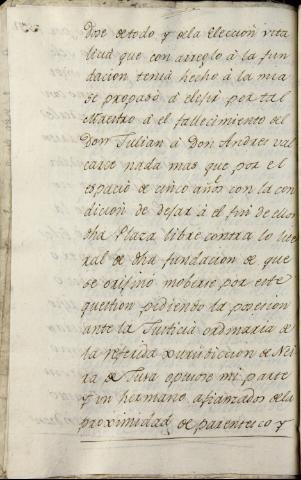 Dose de todo y de la eleccion vita
licia que con arreglo à la fun
dacion tenia hecho à la mia
se propasò à elejir por tal
Maestro à el fallecimiento del
Don Julian à Don Andres val
carce nada mas que por el
espacio de cinco años con la con
dicion de dejar à el fin de ellos
dha Plaza libre contra lo lite
ral de dha fundacion de que
se orijino moberse por este
question pidiendo la posesion
ante la Justicia ordinaria de
la referida xurisdiccion de Nei
ra de Jusa opusose mi parte
y un hermano afianzados de la
proximidad de parentesco y